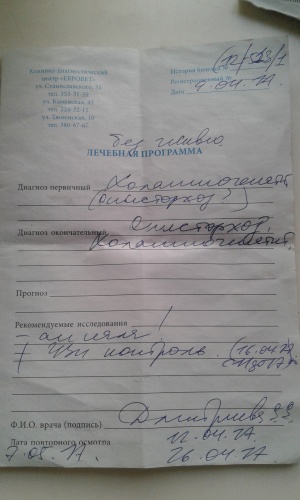 Клинико-диагностический
центр «ЕВРОВЕТ»
ул. Станиславского, 31
тел. 353-31-39
ул. Каменская, 43
тел. 224-32-11
ул. Тюменская, 10
тел. 380-67-67
История болезни №
Регистрационный №
Дата 4.04.17
ЛЕЧЕБНАЯ ПРОГРАММА
Диагноз первичный Холангиогепатит
(описторхоз?)
Диагноз окончательный Описторхоз,
Холангиогепатит
Прогноз
Рекомендуемые исследования
УЗИ контроль (16.04.17
Ф.И.О. врача (подпись)
Дата повторного осмотра 12.04.17
7.05.17. 26.04.17